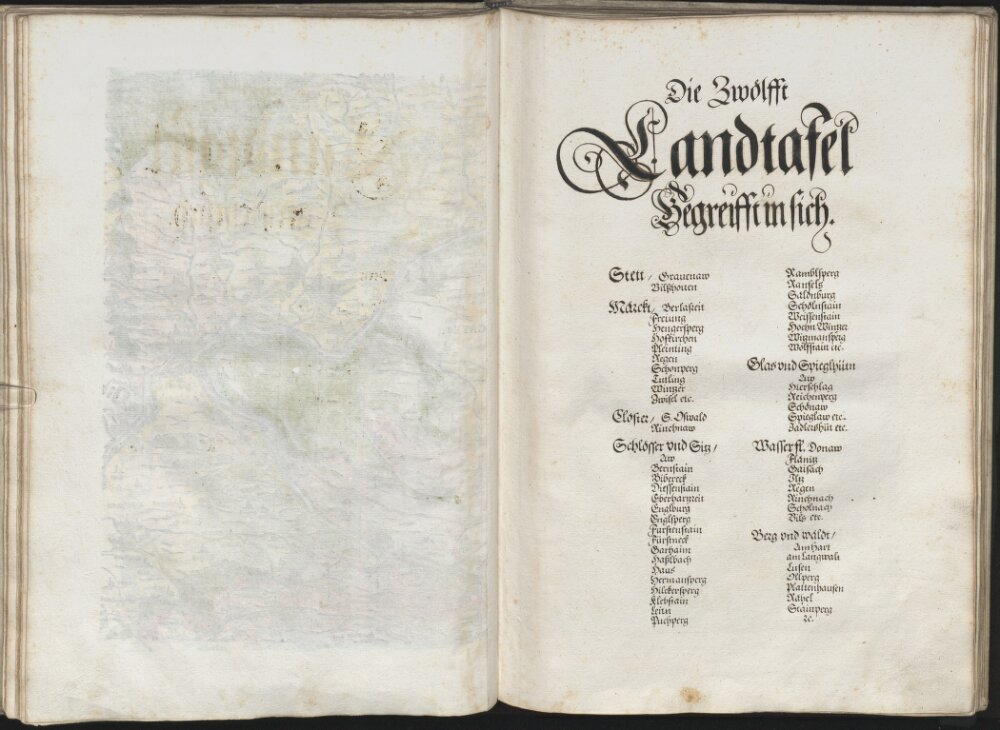 Die Zwölfft
Landtafel
Begreifft in sich.
Stett / Grauenaw
Vilßhouen
Märckt, Berlastein
Freiung
Hengersperg
Hofkirchen
Pleinting
Regen
Schönperg
Tutling
Wintzer
Zwisel etc.
Clöster / S. Oswald
Rinchnaw
Schlösser vnd Sitz /
Aw
Bernstain
Bibereck
Diessenstain
Eberhartzreit
Englburg
Englsperg
Fürstenstain
Fürsteneck
Garhaim
Haßlbach
Haus
Hermansperg
Hilckersperg
Klebstain
Leitn
Puchperg
Ramblsperg
Ranfels
Saldnburg
Schölnstain
Weissenstain
Hoehn Wintzer
Witzmansperg
Wolffstain etc.
Glas vnd Spieglhütn
Aw
Hierschlag
Reichenperg
Schönaw
Spieglaw etc.
Zadlershüt etc.
Wasserfl. Donaw
Flänitz
Gaisach
Iltz
Regen
Rinchnach
Schölnach
Vils etc.
Berg vnd wäldt /
Am Hart
am Langwalt
Lusen
Ollperg
Plattenhausen
Rähel
Stainperg
ꝛc.